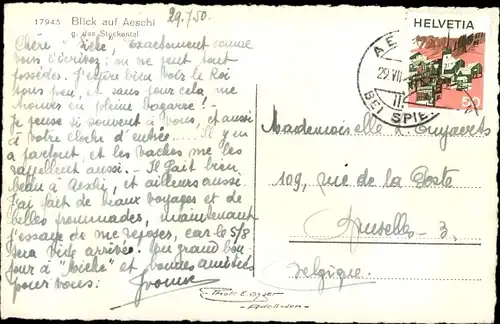 17945 Blick auf Aeschi
g. das Stockental
29.7.50.
Chère "Miche", exactement comme
vous l'écrivez: on ne peut tout
posséder. J'espère bien voir le Roi
sous peu, et sans pour cela me
trouver en pleine bagarre!
Je pense si souvent à vous, et aussi
à votre cloche d'entrée..... Il y en
a partout, et les vaches me les
rappellent aussi. - Il fait bien
beau à Aeschi, et ailleurs aussi.
J'ai fait de beaux voyages et de
belles promenades, maintenant
j'essaye de me reposer, car le 5/8
sera vite arrivé! Un grand bon-
jour à "Miche" et bonnes amitiés
pour vous: Yvonne
HELVETIA
29.VII
BEI SPIEZ
Mademoiselle
109, rue de la Poste
Bruxelles - 3.
Belgique.
Photo E. Gyger
Adelboden